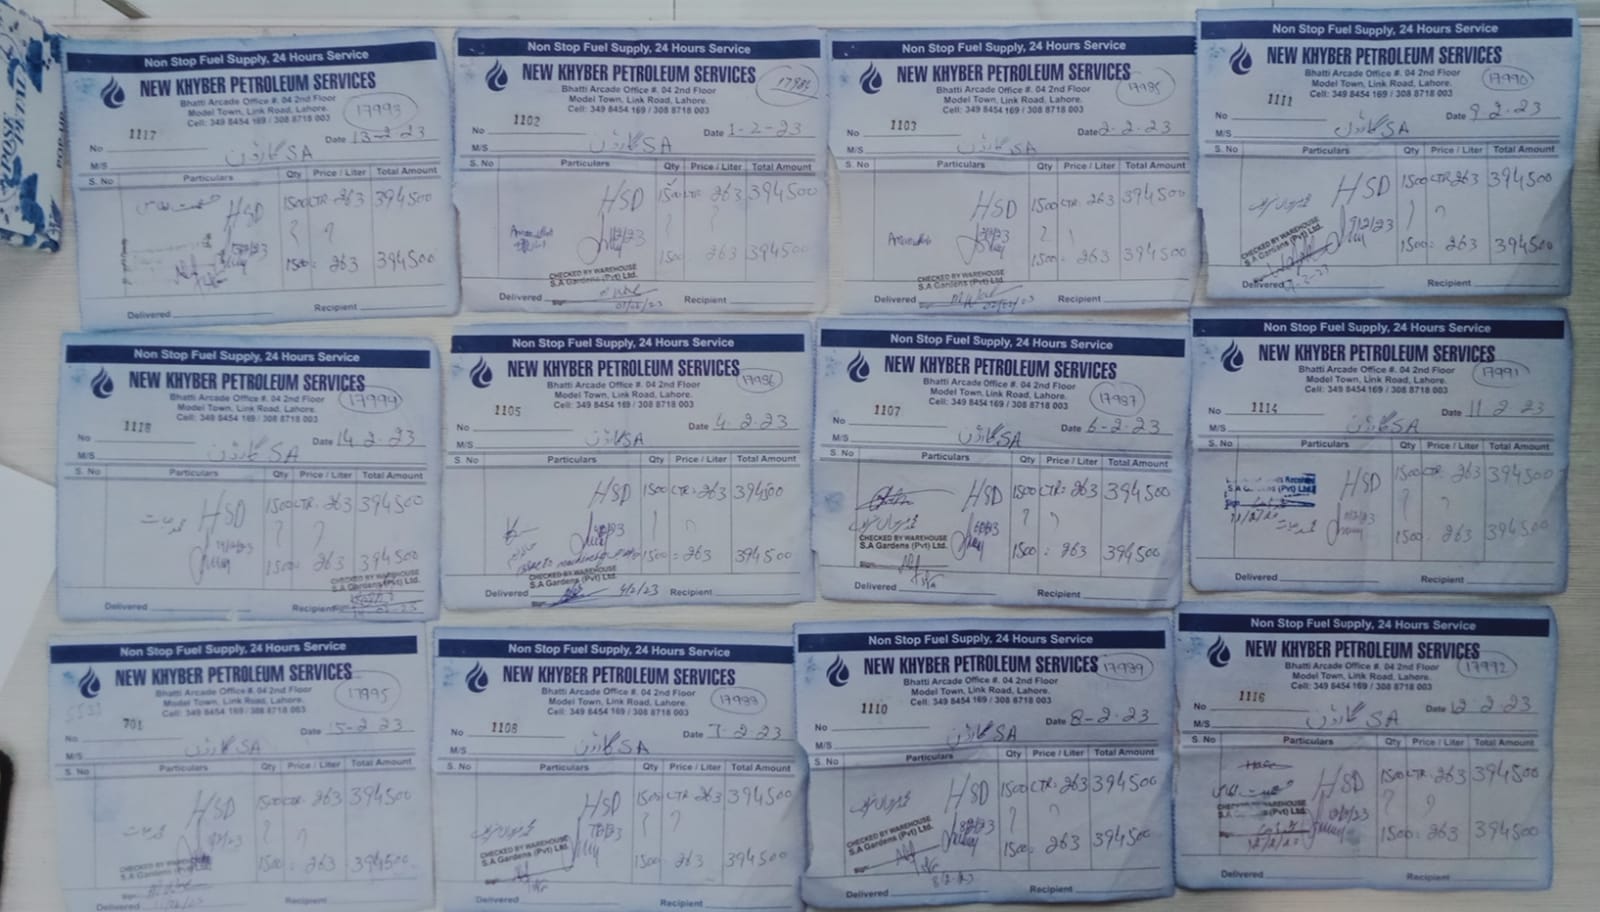 Non Stop Fuel Supply, 24 Hours Service
NEW KHYBER PETROLEUM SERVICES
Bhatti Arcade Office #. 04 2nd Floor
Model Town, Link Road, Lahore.
Cell: 349 8454 169 / 308 8718 003
17993
No 1117 Date 13-2-23
M/S گارڈن SA
S. No Particulars Qty Price / Liter Total Amount
HSD 1500 LTR. 263 394500
1500 263 394500
Delivered Recipient
Non Stop Fuel Supply, 24 Hours Service
NEW KHYBER PETROLEUM SERVICES
Bhatti Arcade Office #. 04 2nd Floor
Model Town, Link Road, Lahore.
Cell: 349 8454 169 / 308 8718 003
17984
No 1102 Date 1-2-23
M/S گارڈن SA
S. No Particulars Qty Price / Liter Total Amount
HSD 1500 LTR 263 394500
1500 263 394500
CHECKED BY WAREHOUSE
S.A Gardens (Pvt) Ltd.
Delivered Recipient
Non Stop Fuel Supply, 24 Hours Service
NEW KHYBER PETROLEUM SERVICES
Bhatti Arcade Office #. 04 2nd Floor
Model Town, Link Road, Lahore.
Cell: 349 8454 169 / 308 8718 003
17985
No 1103 Date 2-2-23
M/S گارڈن SA
S. No Particulars Qty Price / Liter Total Amount
HSD 1500 LTR. 263 394500
1500 263 394500
CHECKED BY WAREHOUSE
S.A Gardens (Pvt) Ltd.
Delivered Recipient
Non Stop Fuel Supply, 24 Hours Service
NEW KHYBER PETROLEUM SERVICES
Bhatti Arcade Office #. 04 2nd Floor
Model Town, Link Road, Lahore.
Cell: 349 8454 169 / 308 8718 003
17990
No 1111 Date 9-2-23
M/S گارڈن SA
S. No Particulars Qty Price / Liter Total Amount
HSD 1500 LTR 263 394500
1500 263 394500
CHECKED BY WAREHOUSE
S.A Gardens (Pvt) Ltd.
Delivered Recipient
Non Stop Fuel Supply, 24 Hours Service
NEW KHYBER PETROLEUM SERVICES
Bhatti Arcade Office #. 04 2nd Floor
Model Town, Link Road, Lahore.
Cell: 349 8454 169 / 308 8718 003
17994
No 1118 Date 14-2-23
M/S گارڈن SA
S. No Particulars Qty Price / Liter Total Amount
HSD 1500 LTR. 263 394500
1500 263 394500
CHECKED BY WAREHOUSE
S.A Gardens (Pvt) Ltd.
Delivered Recipient
Non Stop Fuel Supply, 24 Hours Service
NEW KHYBER PETROLEUM SERVICES
Bhatti Arcade Office #. 04 2nd Floor
Model Town, Link Road, Lahore.
Cell: 349 8454 169 / 308 8718 003
17986
No 1105 Date 4-2-23
M/S گارڈن SA
S. No Particulars Qty Price / Liter Total Amount
HSD 1500 LTR. 263 394500
1500 = 263 394500
CHECKED BY WAREHOUSE
S.A Gardens (Pvt) Ltd.
Delivered 4/2/23 Recipient
Non Stop Fuel Supply, 24 Hours Service
NEW KHYBER PETROLEUM SERVICES
Bhatti Arcade Office #. 04 2nd Floor
Model Town, Link Road, Lahore.
Cell: 349 8454 169 / 308 8718 003
17987
No 1107 Date 6-2-23
M/S گارڈن SA
S. No Particulars Qty Price / Liter Total Amount
HSD 1500 LTR. 263 394500
1500 263 394500
CHECKED BY WAREHOUSE
S.A Gardens (Pvt) Ltd.
Delivered Recipient
Non Stop Fuel Supply, 24 Hours Service
NEW KHYBER PETROLEUM SERVICES
Bhatti Arcade Office #. 04 2nd Floor
Model Town, Link Road, Lahore.
Cell: 349 8454 169 / 308 8718 003
17991
No 1114 Date 11-2-23
M/S گارڈن SA
S. No Particulars Qty Price / Liter Total Amount
HSD 1500 LTR. 263 394500
1500 263 394500
Delivered Recipient
Non Stop Fuel Supply, 24 Hours Service
NEW KHYBER PETROLEUM SERVICES
Bhatti Arcade Office #. 04 2nd Floor
Model Town, Link Road, Lahore.
Cell: 349 8454 169 / 308 8718 003
17995
No 701 Date 15-2-23
M/S گارڈن SA
S. No Particulars Qty Price / Liter Total Amount
HSD 1500 LTR. 263 394500
1500 263 394500
CHECKED BY WAREHOUSE
S.A Gardens (Pvt) Ltd.
Delivered Recipient
Non Stop Fuel Supply, 24 Hours Service
NEW KHYBER PETROLEUM SERVICES
Bhatti Arcade Office #. 04 2nd Floor
Model Town, Link Road, Lahore.
Cell: 349 8454 169 / 308 8718 003
17988
No 1108 Date 7-2-23
M/S گارڈن SA
S. No Particulars Qty Price / Liter Total Amount
HSD 1500 LTR 263 394500
1500 263 394500
CHECKED BY WAREHOUSE
S.A Gardens (Pvt) Ltd.
Delivered Recipient
Non Stop Fuel Supply, 24 Hours Service
NEW KHYBER PETROLEUM SERVICES
Bhatti Arcade Office #. 04 2nd Floor
Model Town, Link Road, Lahore.
Cell: 349 8454 169 / 308 8718 003
17989
No 1110 Date 8-2-23
M/S گارڈن SA
S. No Particulars Qty Price / Liter Total Amount
HSD 1500 LTR. 263 394500
1500 263 394500
CHECKED BY WAREHOUSE
S.A Gardens (Pvt) Ltd.
8/2/23
Delivered Recipient
Non Stop Fuel Supply, 24 Hours Service
NEW KHYBER PETROLEUM SERVICES
Bhatti Arcade Office #. 04 2nd Floor
Model Town, Link Road, Lahore.
Cell: 349 8454 169 / 308 8718 003
17992
No 1116 Date 12-2-23
M/S گارڈن SA
S. No Particulars Qty Price / Liter Total Amount
HSD 1500 LTR. 263 394500
1500 263 394500
CHECKED BY WAREHOUSE
S.A Gardens (Pvt) Ltd.
Delivered Recipient